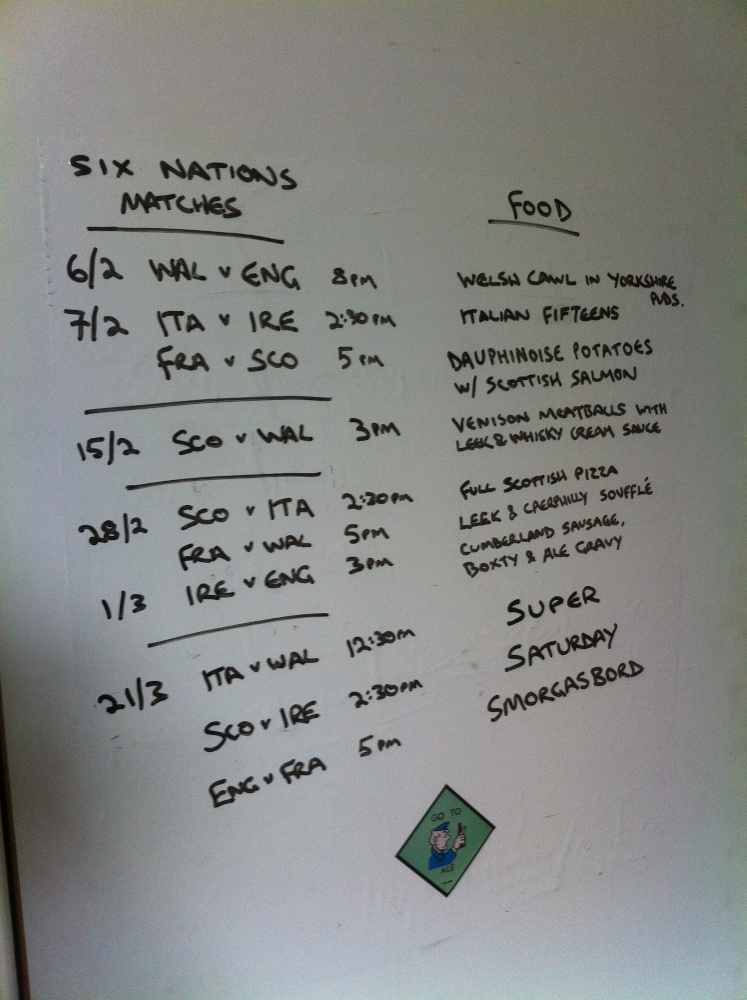 SIX NATIONS
MATCHES
FOOD
6/2 WAL v ENG 8PM WELSH CAWL IN YORKSHIRE
PUDS.
7/2 ITA v IRE 2:30PM ITALIAN FIFTEENS
FRA v SCO 5PM DAUPHINOISE POTATOES
W/ SCOTTISH SALMON
15/2 SCO v WAL 3PM VENISON MEATBALLS WITH
LEEK & WHISKY CREAM SAUCE
28/2 SCO v ITA 2:30PM FULL SCOTTISH PIZZA
FRA v WAL 5PM LEEK & CAERPHILLY SOUFFLÉ
1/3 IRE v ENG 3PM CUMBERLAND SAUSAGE,
BOXTY & ALE GRAVY
21/3 ITA v WAL 12:30PM SUPER
SCO v IRE 2:30PM SATURDAY
ENG v FRA 5PM SMORGASBORD
GO TO
ALE